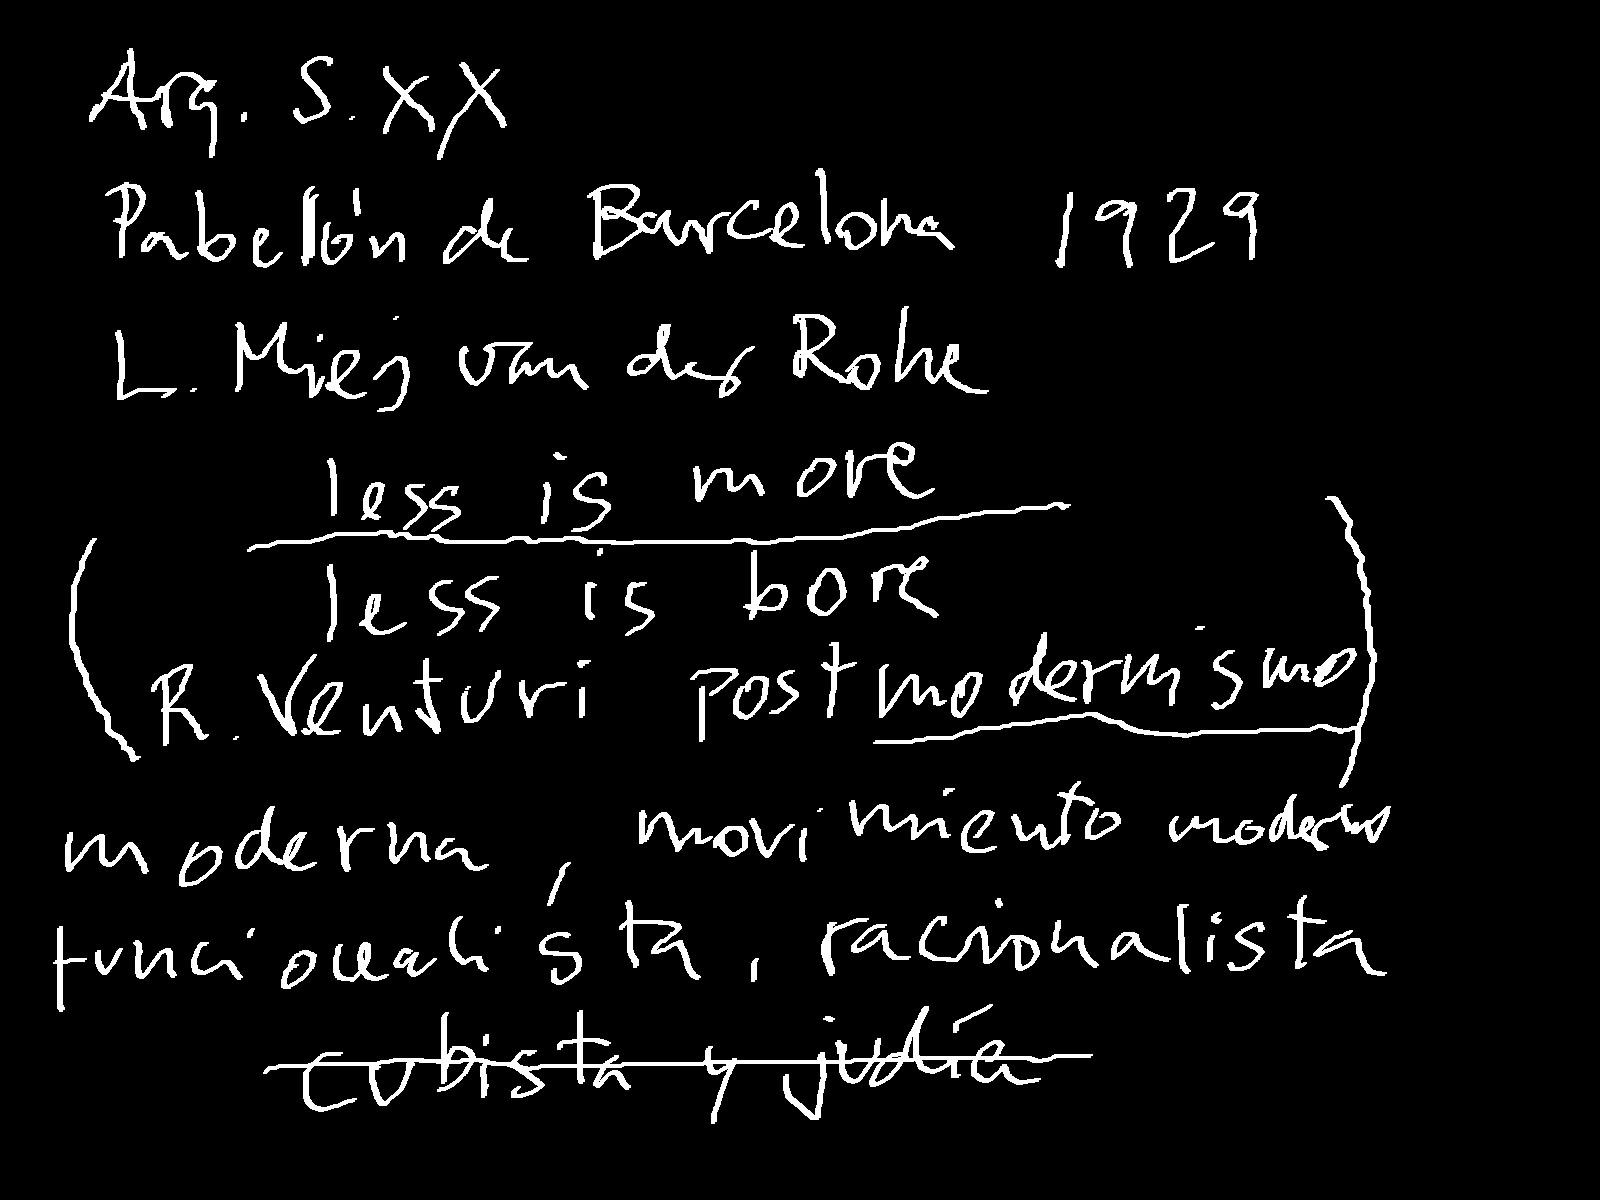 Arq. S. XX
Pabellón de Barcelona 1929
L. Mies van der Rohe
less is more
less is bore
(R. Venturi postmodernismo)
moderna, movimiento moderno
funcionalista, racionalista
cubista y judía